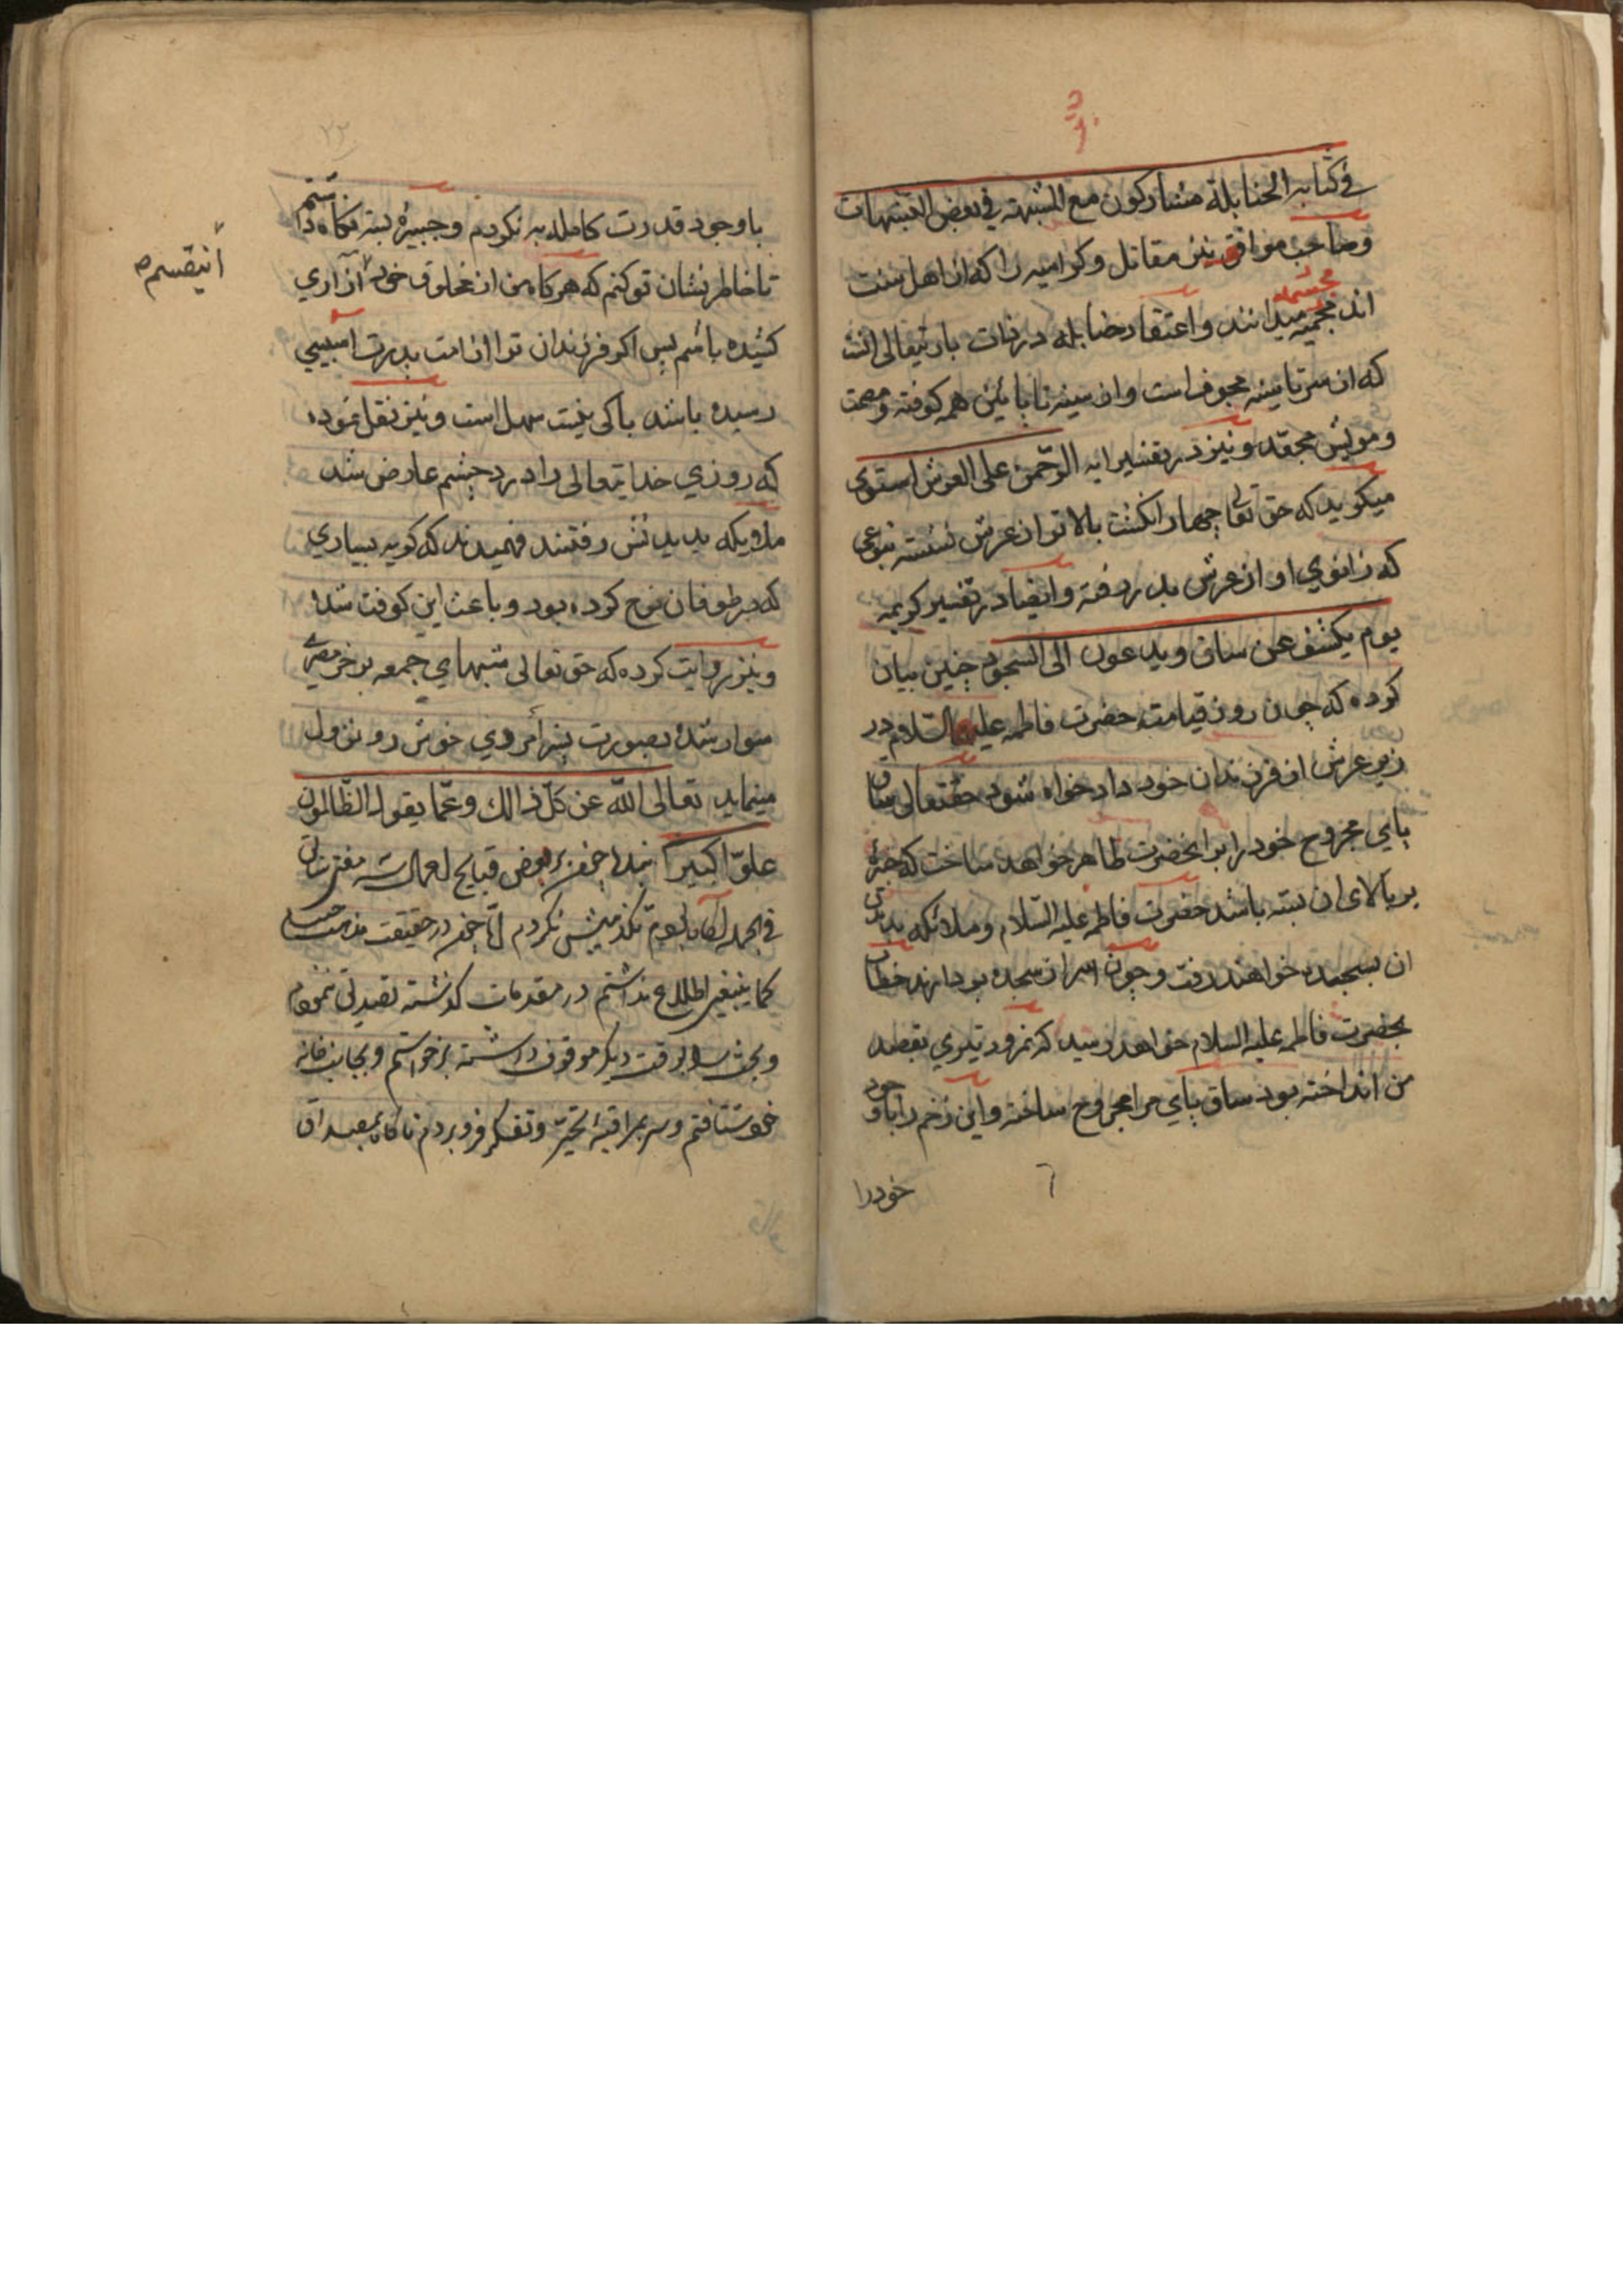 في كتابه الحنابلة مشاركون مع المشبهة في بعض التشبهات
وصاحب مواقف نيز مقاتل وكراميه را كه از اهل سنت
اند مجسمه ميدانند واعتقاد حنابله در ذات باريتعالى انست
كه از سر تا سينه مجوف است واز سينه تا پائين همه كوفته ومصمت
ومويش مجعّد ونيز در تفسير ايه الرّحمن على العرش استوى
ميكويد كه حق تعالى چهار انكشت بالاتر از عرش نشسته بنوعي
كه زانوي او از عرش بدر رفته وايضا در تفسير كريمه
يوم يكشف عن ساق ويدعون الى السّجود چنين بيان
كرده كه چون روز قيامت حضرت فاطمه عليها السّلام در
زير عرش از فرزندان خود داد خواه شود حقتعالى ساق
پاي مجروح خود را بر انحضرت ظاهر خواهد ساخت كه جبيرۀ
بر بالاى ان بسته باشد حضرت فاطمه عليه السّلام وملائكه بديدن
ان بسجده خواهند رفت وچون سر از سجده بردارند خطاب
بحضرت فاطمه عليه السلام خواهد رسيد كه نمرود تيري بقصد
من انداخته بود ساق پاي مرا مجروح ساخته واين زخم را با وجود
خود را
٢٣
با وجود قدرت كامله به نكردم وجبيرۀ بسته نكاه داشتم
تا خاطر نشان تو كنم كه هركاه من از مخلوق خود آزاري
انيقسم
كشيده باشم پس اكر فرزندان ترا از امت پدرت اسيبي
رسيده باشد باكى نيست سهل است ونيز نقل نموده
كه روزي خدايتعالى را درد چشم عارض شد
ملائكه بديدنش رفتند فهميدند كه كريه بسياري
كه بر طوفان نوح كرده بود وباعث اين كوفت شده
ونيز روايت كرده كه حق تعالى شبهاي جمعه بر خر مصري
سوار شده بصورت پسر أمردي خوش رو نزول
مينمايد تعالى اللّه عن كلّ ذالك وعمّا يقول الظّالمون
علوّا كبيرا بنده چون بر بعض قبايح اعمال
في الجمله اكاه بودم تكذيبش نكردم امّا چون در حقيقت مذهب
كما ينبغي اطلاع نداشتم در مقدمات كذشته تصديق ننمودم
وبحث را بوقت ديكر موقوف داشته برخواستم وبجانب خانه
خود شتافتم وسر بمراقبه تحيّر وتفكر فرو بردم ناكاه بمصداق